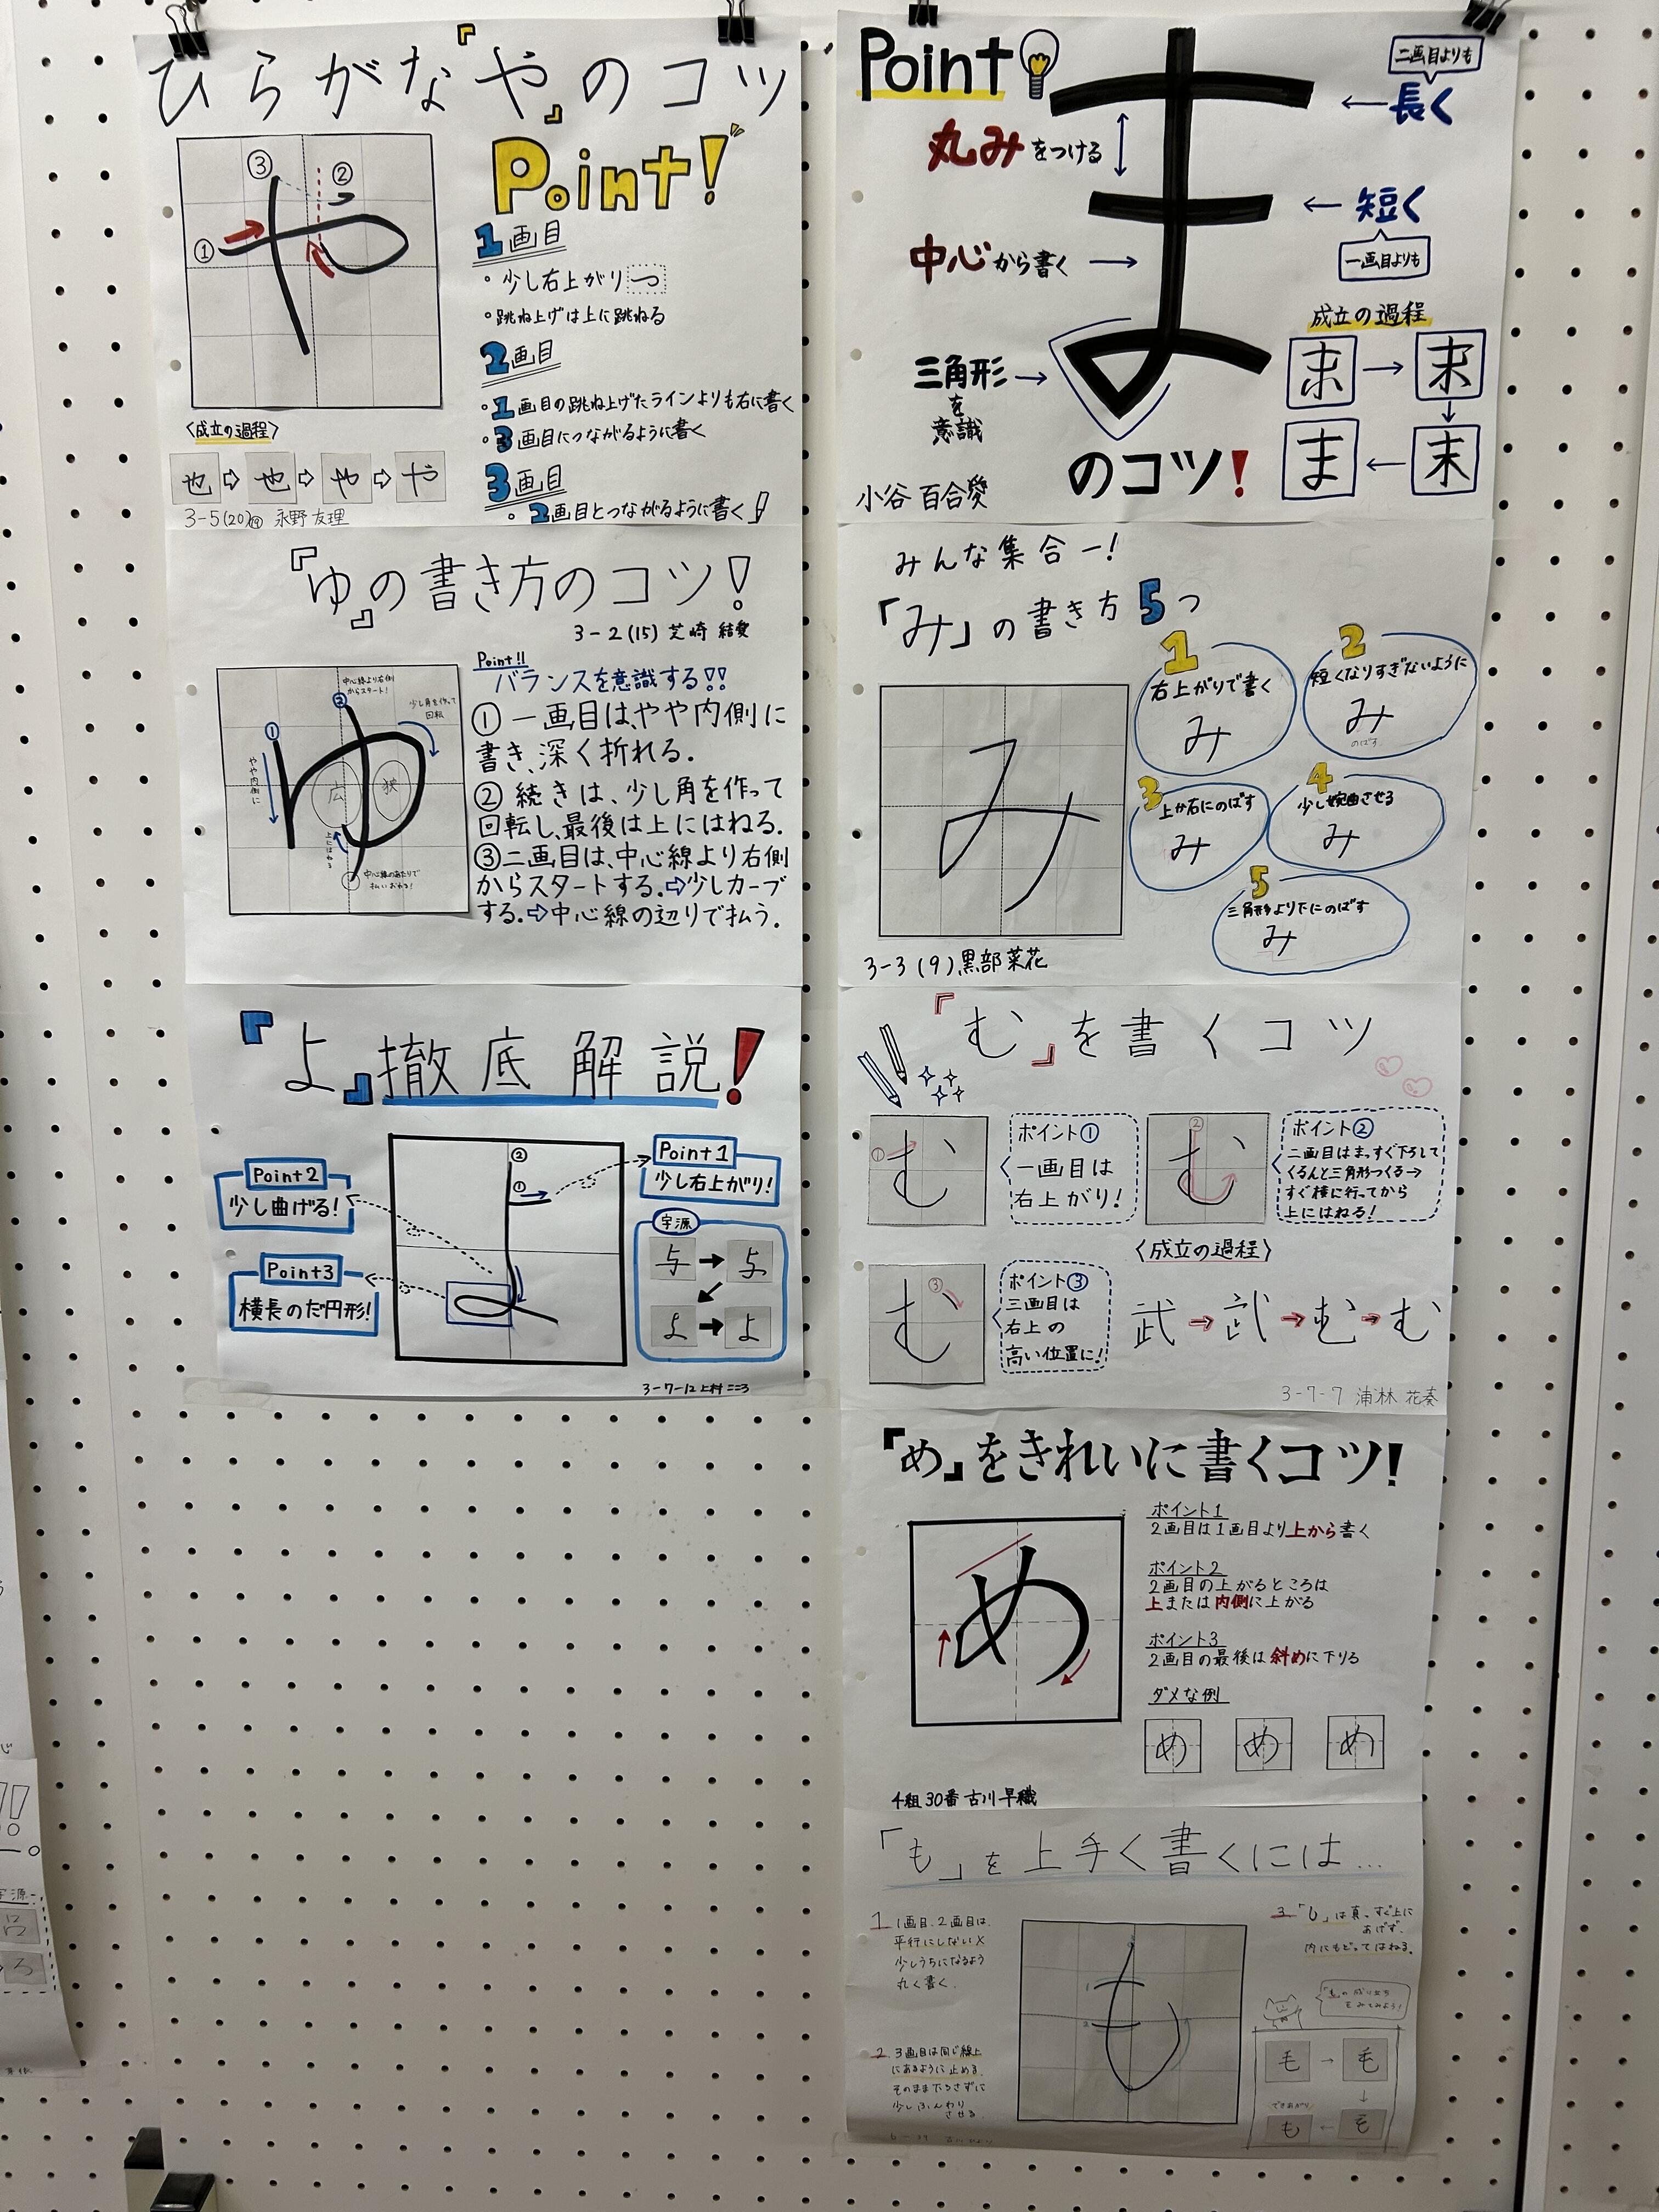 ひらがな『や』のコツ
Point!
③
②
①
1画目
・少し右上がり つ
・跳ね上げは上に跳ねる
2画目
・1画目の跳ね上げたラインよりも右に書く
・3画目につながるように書く
3画目
・2画目とつながるように書く
〈成立の過程〉
也⇨也⇨や⇨や
3-5(20) 永野 友理
『ゆ』の書き方のコツ!
3-2(15) 芝崎 結愛
Point!!
バランスを意識する!!
① 一画目は、やや内側に
書き、深く折れる.
② 続きは、少し角を作って
回転し、最後は上にはねる.
③二画目は、中心線より右側
からスタートする.⇨少しカーブ
する.⇨中心線の辺りで払う.
中心線より右側
からスタート!
少し角を作って
回転
①
②
やや内側に
広
狭
上にはねる
中心線のあたりで
払いおわる!
『よ』徹底解説!
Point1
少し右上がり!
Point2
少し曲げる!
Point3
横長のだ円形!
②
①
字源
与→与
よ→よ
3-7-12 上村
Point
ま
二画目よりも
←長く
丸みをつける
←短く
一画目よりも
中心から書く→
三角形→
を
意識
成立の過程
末→末
ま←末
のコツ!
小谷 百合愛
みんな集合ー!
「み」の書き方5つ
み
1
右上がりで書く
み
2
短くなりすぎないように
み
のばす
3
上か右にのばす
み
4
少し婉曲させる
み
5
三角形より下にのばす
み
3-3 (9) 黒部菜花
『む』を書くコツ
①
む
ポイント①
一画目は
右上がり!
②
む
ポイント②
二画目はまっすぐ下ろして
くるんと三角形つくる→
すぐ横に行ってから
上にはねる!
③
む
ポイント③
三画目は
右上の
高い位置に!
〈成立の過程〉
武→武→む→む
3-7-7 浦林 花奏
『め』をきれいに書くコツ!
め
ポイント1
2画目は1画目より上から書く
ポイント2
2画目の上がるところは
上または内側に上がる
ポイント3
2画目の最後は斜めに下りる
ダメな例
め め め
4組30番 古川早織
「も」を上手く書くには...
1 1画目、2画目は、
平行にしない×
少しうちになるよう
丸く書く.
2. 3画目は同じ線上
にあるように止める.
そのまま下ろさずに
少しふんわり
させる.
も
3 「し」は真っすぐ上に
あげず、
内にもどってはねる.
「も」の成り立ち
をみてみよう!
毛→毛
できあがり
も←も